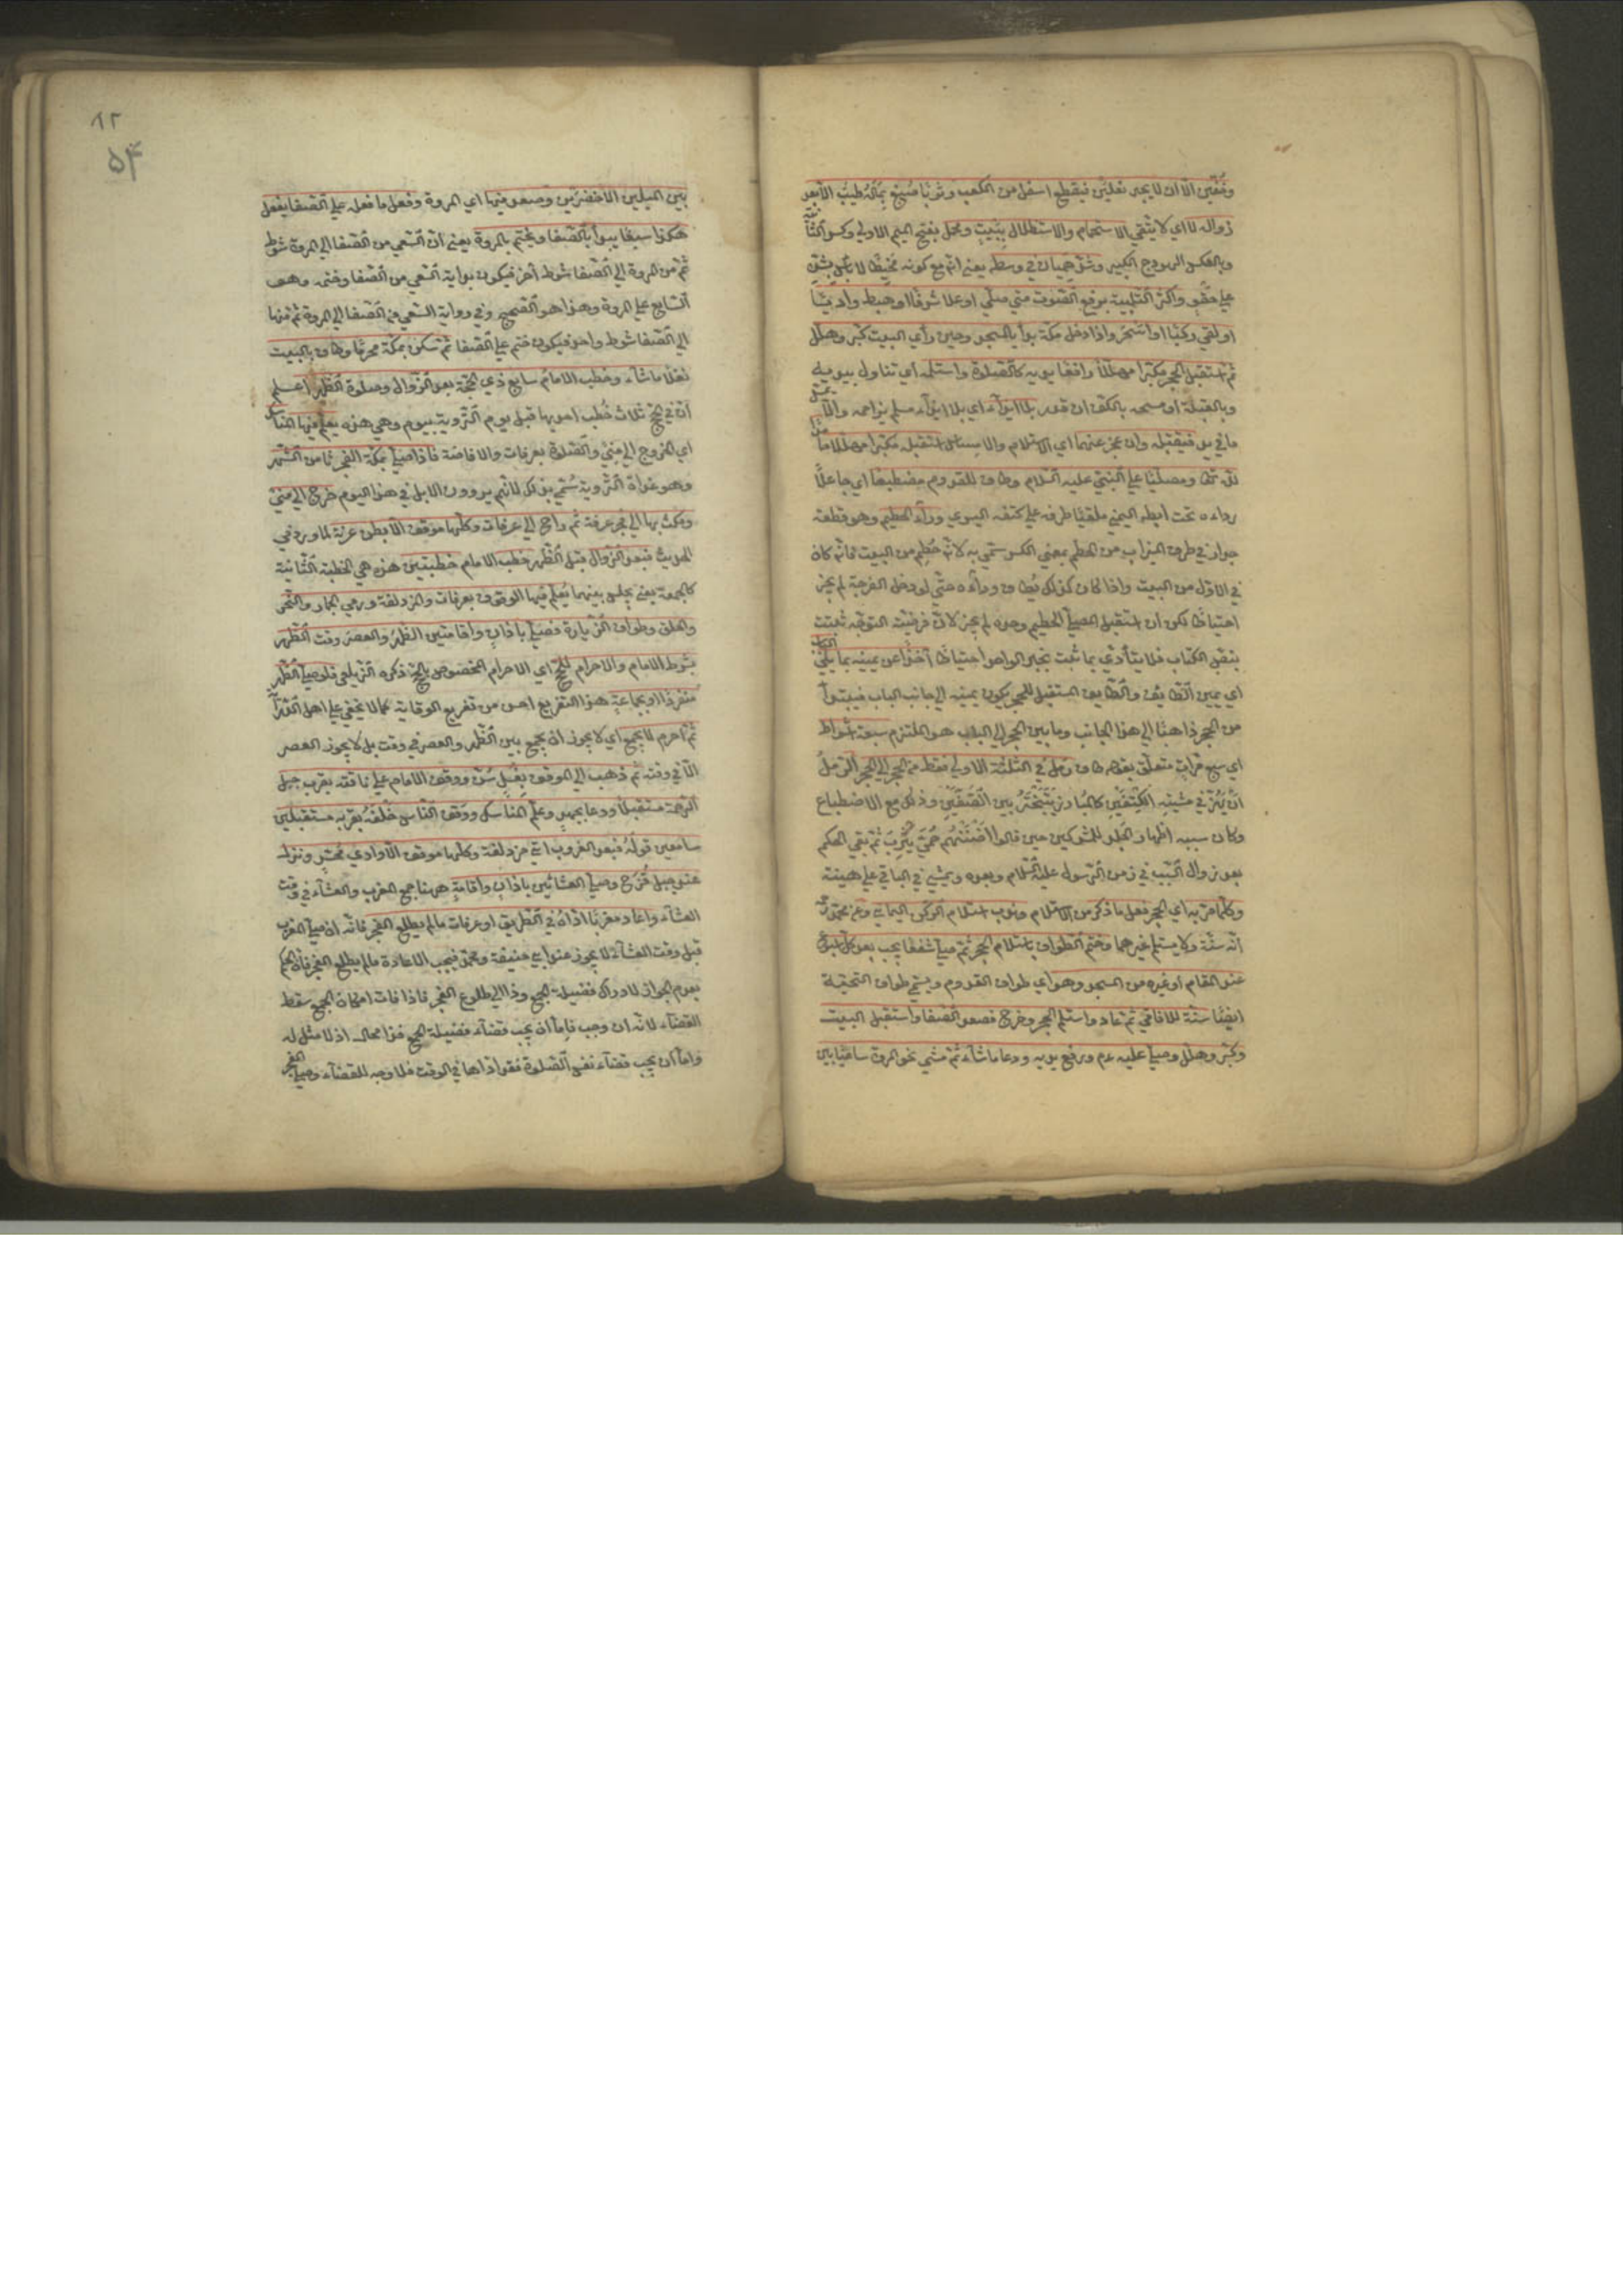 وخفّين الّا ان لا يجد نعلين فيقطع اسفل من الكعب وثوبًا صُبِغَ بمَالَهُ طيبٌ الّا بعد
زواله لا اي لا يتّقي الاستحمام والاستظلال ببَيتٍ ومحمل بفتح الميم الاولي وكسر الثّانية
وبالعكس الهودج الكبير وشدّ هميان في وسطه يعني انّه مع كونه مخيطًا لا بأس بشدّه
علي حقْوٍ واكثر التّلبية برفع الصّوت متي صلّي او علا شرفًا او هبط واديًا
او لقي ركبًا او اسحَر واذا دخل مكّة بدأ بالمسجد وحين رأي البيت كبّر وهلّل
ثم استقبل الحجر مكبّرا مهلّلا رافعًا يديه كالصّلوة واستلمه اي تناوله بيديه
وبالقبلة او مسحه بالكفّ ان قدر بلا ايذاء اي بلا ايذاء مسلم يزاحمه والّا يمسّ
ما في يده فيقبّله وان عجز عنهما اي الاستلام والامساس استقبله مكبّرا مهلّلا حامدًا
للّه تعالى ومصلّيًا علي النّبيّ عليه السّلام وطاف للقدوم مضطبعًا اي جاعلًا
رداءه تحت ابطه اليمني ملقيًا طرفه علي كتفه اليسري وراء الحطيم وهو قطعة
جدار في طرف الميزاب من الحطم بمعني الكسر سُمّي به لانّه حُطِم من البيت فانّه كان
في الاوّل من البيت واذا كان كذلك يُطاف وراءه حتّي لو دخل الفرجة لم يجز
احتياطًا لكن ان استقبل المصلّي الحطيم وحده لم يجز لانّ فرضيّة التوجّه ثبتت
بنصّ الكتاب فلا يتأدّي بما ثبت بخبر الواحد احتياطًا آخذًا عن يمينه بما يلي الباب
اي يمين الطّائف والطّائف المستقبل للحجر يكون يمينه الي جانب الباب فيبتدأ
من الحجر ذاهبًا الي هذا الجانب وما بين الحجر الي الباب هو الملتزم سبعة اشواط
اي سبع مرّاتٍ متعلّق بقوله طاف ورمل في الثّلثة الاولي فقط من الحجر الي الحجر الرّمل
ان يهُزّ في مشيته الكتفَين كالمبارز يتبَخْتَر بين الصّفّين وذلك مع الاضطباع
وكان سببه اظهار الجلد للمشركين حين قالوا اضْنَتْهُم حُمّيَ يَثْرِبَ ثم بقي الحكم
بعد زوال السّبب في زمن الرّسول عليه السّلام وبعده ويمشي في الباقي علي هينته
وكلّما مرّ به اي الحجر فعل ما ذكر من الاستلام وندب استلام الرّكن اليماني وعن محمّد
انّه سنّة ولا يستلم غيرهما وختم الطّواف باستلام الحجر ثم صلّي شفعًا يجب بعد كلّ اسبوع
عند المقام او غيره من المسجد وهو اي طواف القدوم ويسمّي طواف التحيّة
ايضًا سنّة للآفاقي ثم عاد واستلم الحجر وخرج فصعد الصّفا واستقبل البيت
وكبّر وهلّل وصلّي عليه عم ورفع يديه ودعا ما شاء ثم مشي نحو المروة ساعيًا بين
١٢
٥٤
بين الميلين الاخضرين وصعد فيها اي المروة وفعل ما فعله علي الصّفا يفعل
هكذا سبعًا يبدأ بالصّفا ويختم بالمروة يعني انّ السّعي من الصّفا الي المروة شوط
ثم من المروة الي الصّفا شوط آخر فيكون بداية السّعي من الصّفا وختمه وهو
السّابع علي المروة وهذا هو الصّحيح وفي رواية السّعي من الصّفا الي المروة ثم منها
الي الصّفا شوط واحد فيكون ختم علي الصّفا ثم سكن بمكّة محرمًا وطاف بالبيت
نفلًا ما شاء وخطب الامام سابع ذي الحجّة بعد الزّوال وصلوة الظّهر اعلم
انّ في الحجّ ثلاث خُطب احديها قبل يوم التّروية بيوم وهي هذه يعلّم فيها المناسك
اي الخروج الي مني والصّلوة بعرفات والافاضة فاذا صلّي بمكّة الفجر ثامن الشّهر
وهو غداة التّروية سُمّي بذلك لانّهم يروون الابل في هذا اليوم خرج الي مني
ومكث بها الي فجر عرفة ثم راح الي عرفات وكلّها موقف الّا بطن عرنة لما ورد في
الحديث فبعد الزّوال قبل الظّهر خطب الامام خطبتين هذه هي الخطبة الثّانية
كالجمعة يعني يجلس بينهما يُعلّم فيها الوقوف بعرفات والمزدلفة ورمي الجمار والنّحر
والحلق وطواف الزّيارة فصلّي باذانٍ واقامتين الظّهرَ والعصرَ وقت الظّهر
بشرط الامام والاحرام للحجّ اي الاحرام المخصوص بالحجّ ذكره الزّيلعي فلو صلّي الظّهر
منفردًا او بجماعةٍ هذا التفريع احسن من تفريع الوقاية كما لا يخفي علي اهل الدّراية
ثم احرم لا يجمع اي لا يجوز ان يجمع بين الظّهر والعصر في وقت بل لا يجوز العصر
الّا في وقته ثم ذهب الي الموقف بغُسلٍ سُنّ ووقف الامام علي ناقته بقرب جبل
الرّحمة مستقبلًا ودعا بجهدٍ وعلّم المناسك ووقف النّاس خَلْفَهُ بقربه مستقبلين
سامعين قولَهُ فبعد الغروب اتي مزدلفة وكلّها موقف الّا وادي محسّر ونزل
عند جبل قُزَح وصلّي العشائين باذانٍ واقامةٍ ههنا جمع المغرب والعشاء في وقت
العشاء واعاد مغربًا ادّاهُ في الطّريق او عرفات ما لم يطلع الفجر فانّه ان صلّي المغرب
قبل وقت العشاء لا يجوز عند ابي حنيفة ومحمّد فيجب الاعادة ما لم يطلع الفجر فانّ الحكم
بعدم الجواز لادراك فضيلة الجمع وذا الي طلوع الفجر فاذا فات امكان الجمع سقط
القضاء لانّه ان وجب فامّا ان يجب قضاء فضيلة الجمع فذا محال اذ لا مثل له
وامّا ان يجب قضاء نفس الصّلوة فقد ادّاها في الوقت فلا وجه للقضاء وصلّي الفجر